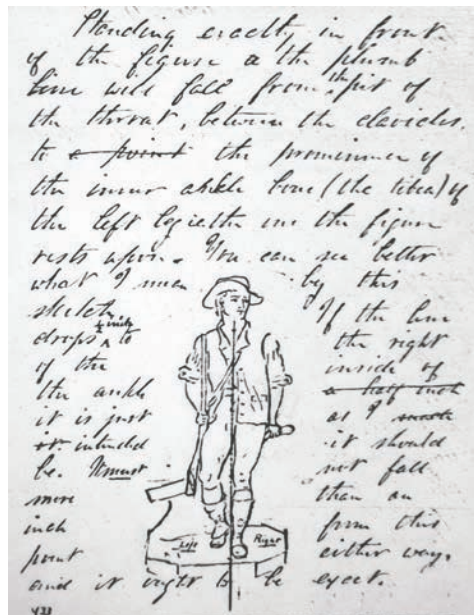 Standing exactly in front
of the figure a the plumb
line will fall from the pit of
the throat, between the clavicles,
to a point the prominence of
the inner ankle bone (the tibia) of
the left leg the one the figure
rests upon. You can see better
what I mean by this
sketch If the line
drops ½ inch to the right
of the inside of
the ankle a half inch
it is just as I
intended it should
be. It must not fall
more than an
inch from this
Left Right
point either way
and it ought to be exact.